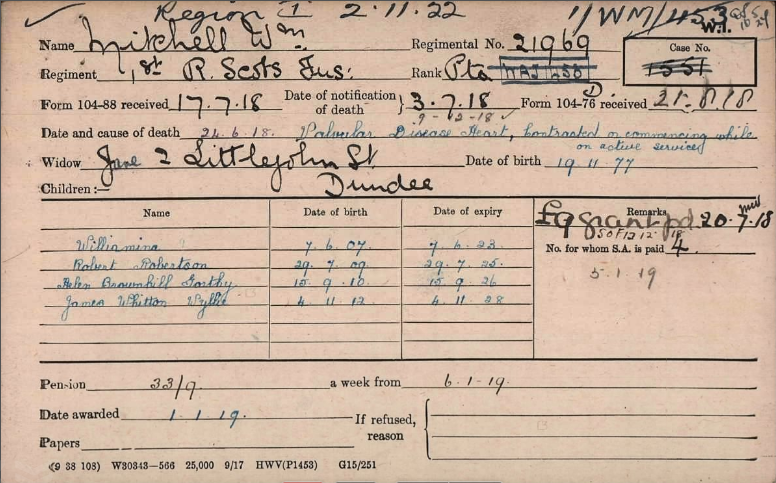 Region 1 2.11.22 1/WM/453
W.I.
Name Mitchell Wm. Regimental No. 21969 Case No.
Regiment 1st R. Scots Fus: Rank Pte 1551
Form 104-88 received 17.7.18 Date of notification of death } 3.7.18 Form 104-76 received 21.8.18
9-12-18
Date and cause of death 24.6.18. Valvular Disease Heart, contracted or commencing while
on active service
Widow Jane 2 Littlejohn St. Date of birth 19 11 77
Children:— Dundee
Name Date of birth Date of expiry Remarks
£9 grant pd. 20.7.18
Williamina 7.6.07. 7.6.23. No. for whom S.A. is paid 4
Robert Robertson 29.7.09 29.7.25. 5.1.19
Helen Brownhill 15.9.10 15.9.26
James Whitton Wyllie 4.11.12 4.11.28
Pension 33/9 a week from 6-1-19.
Date awarded 1.1.19. If refused, reason
Papers
(9 38 108) W30343—566 25,000 9/17 HWV(P1453) G15/251